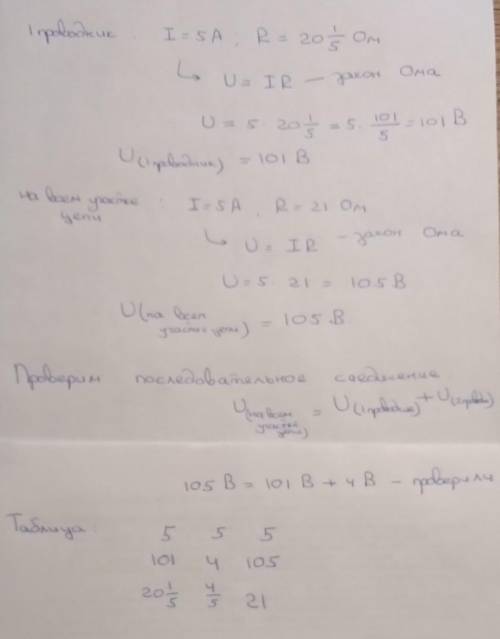 1 проводник : I = 5 А , R = 20 1/5 Ом
↳ U = IR — закон Ома
U = 5 · 20 1/5 = 5 · 101/5 = 101 В
U(1 проводник) = 101 В
на всем участке цепи : I = 5 А , R = 21 Ом
↳ U = IR — закон Ома
U = 5 · 21 = 105 В
U(на всем участке цепи) = 105 В
Проверим последовательное соединение
U(на всем участке цепи) = U(1 проводник) + U(2 провод)
105 В = 101 В + 4 В – проверили
Таблица :
5 5 5
101 4 105
20 1/5 4/5 21